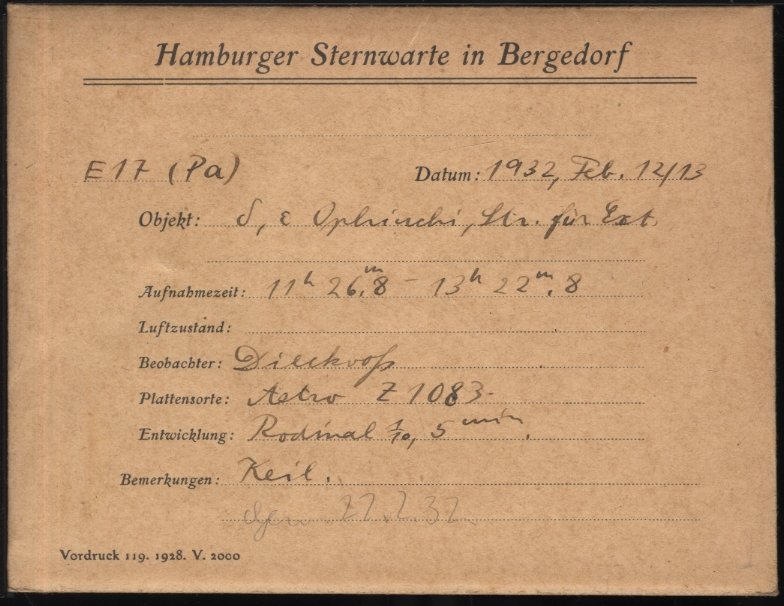 Hamburger Sternwarte in Bergedorf
E17 (Pa) Datum: 1932, Feb. 12/13
Objekt: δ, ε Ophiuchi, Str. für Ext.
Aufnahmezeit: 11ʰ 26ᵐ.8 – 13ʰ 22ᵐ.8
Luftzustand:
Beobachter: Dieckvoß
Plattensorte: Astro Z 1083
Entwicklung: Rodinal 1/10, 5 min.
Bemerkungen: Keil.
22.2.32
Vordruck 119. 1928. V. 2000